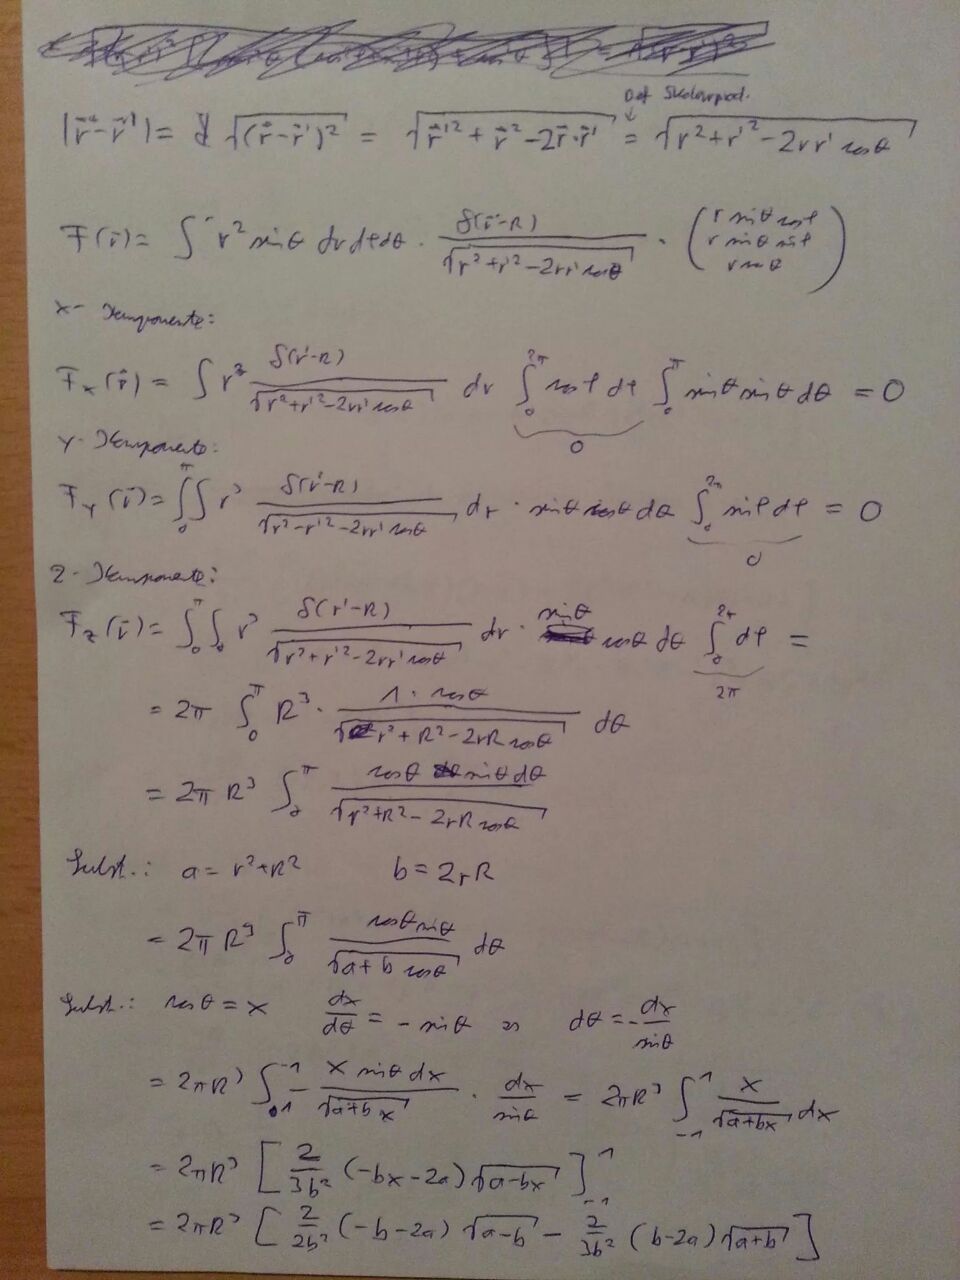 Def Skalarprod.
|r⃗-r⃗'| = √((r⃗-r⃗')²) = √(r⃗'² + r⃗² - 2r⃗·r⃗') = √(r² + r'² - 2rr' cosθ)
F(r⃗) = ∫ r² sinθ dr dφ dθ · δ(r'-R)/√(r²+r'²-2rr' cosθ) · (r sinθ cosφ
r sinθ sinφ
r cosθ)
x-Komponente:
F_x(r⃗) = ∫ r³ δ(r'-R)/√(r²+r'²-2rr' cosθ) dr ∫₀^2π cosφ dφ ∫₀^π sinθ sinθ dθ = 0
0
y-Komponente:
F_y(r⃗) = ∫₀^π ∫ r³ δ(r'-R)/√(r²-r'²-2rr' cosθ) dr · sinθ dθ ∫₀^2π sinφ dφ = 0
0
z-Komponente:
F_z(r⃗) = ∫₀^π ∫₀ r³ δ(r'-R)/√(r²+r'²-2rr' cosθ) dr · sinθ cosθ dθ ∫₀^2π dφ =
2π
= 2π ∫₀^π R³ · 1·cosθ/√(r²+R²-2rR cosθ) dθ
= 2π R³ ∫₀^π cosθ sinθ dθ/√(r²+R²-2rR cosθ)
Subst.: a = r²+R² b = 2rR
= 2π R³ ∫₀^π cosθ sinθ/√(a+b cosθ) dθ
Subst.: cosθ = x dx/dθ = -sinθ ⇒ dθ = -dx/sinθ
= 2πR³ ∫₁^-1 - x sinθ dx/√(a+bx) · dx/sinθ = 2πR³ ∫_-1^1 x/√(a+bx) dx
= 2πR³ [2/3b² (-bx-2a) √(a-bx)]_-1^1
= 2πR³ [2/3b² (-b-2a) √(a-b) - 2/3b² (b-2a) √(a+b)]